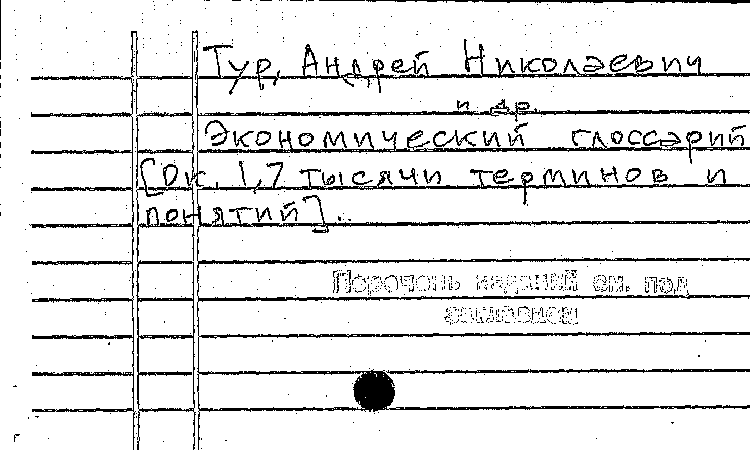 Тур, Андрей Николаевич
и др.
Экономический глоссарий
[Ок. 1,7 тысячи терминов и
понятий]..
Перечень изданий см. под
заглавием